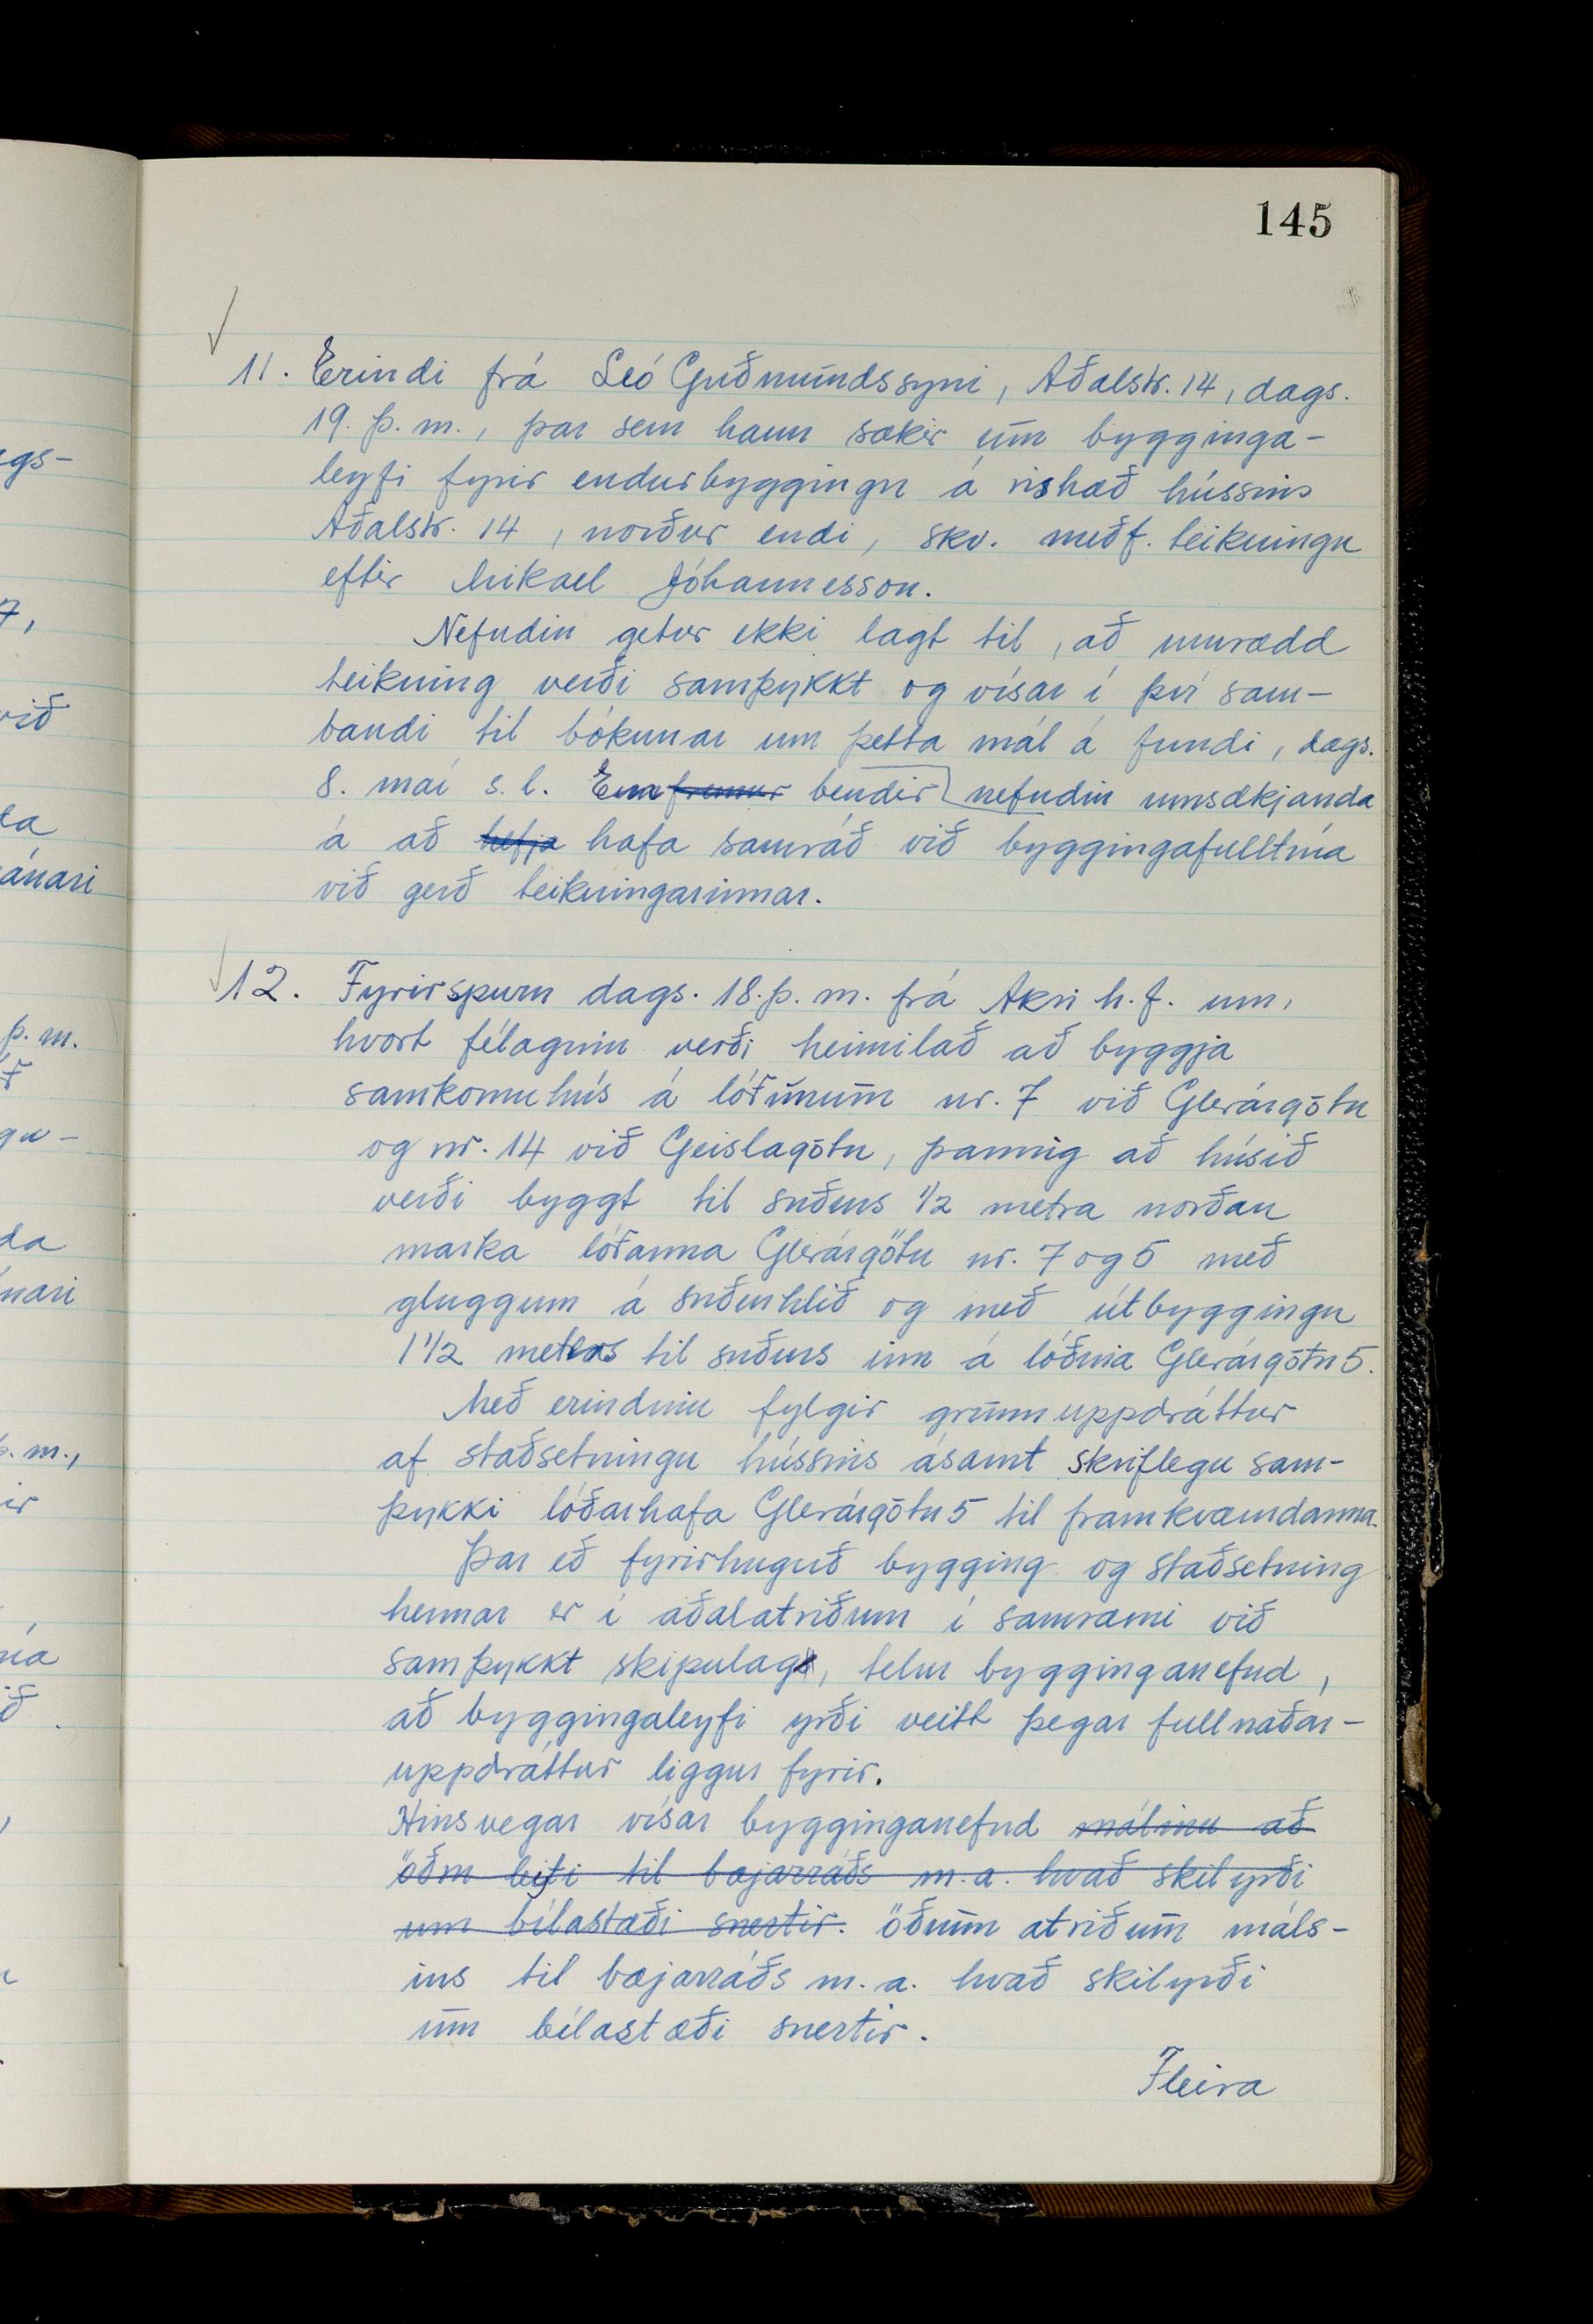 145
11. Erindi frá Leó Guðmundssyni, Aðalstr. 14, dags.
19. þ.m., þar sem hann sækir um bygginga-
leyfi fyrir endurbyggingu á rishæð hússins
Aðalstr. 14, norður endi, skv. meðf. teikningu
eftir Mikael Jóhannesson.
Nefndin getur ekki lagt til, að umrædd
teikning verði samþykkt og vísar í því sam-
bandi til bókunar um þetta mál á fundi, dags.
8. maí s.l. Enn fremur bendir nefndin umsækjanda
á að hefja hafa samráð við byggingafulltrúa
við gerð teikningarinnar.
12. Fyrirspurn dags. 18. þ.m. frá Akri h.f. um,
hvort félaginu verði heimilað að byggja
samkomuhús á lóðunum nr. 7 við Glerárgötu
og nr. 14 við Geislagötu, þannig að húsið
verði byggt til suðurs 1/2 metra norðan
marka lóðanna Glerárgötu nr. 7 og 5 með
gluggum á suðurhlið og með útbyggingu
1 1/2 meters til suðurs inn á lóðina Glerárgötu 5.
Með erindinu fylgir grunnuppdráttur
af staðsetningu hússins ásamt skriflegu sam-
þykki lóðarhafa Glerárgötu 5 til framkvæmdanna.
Þar eð fyrirhuguð bygging og staðsetning
hennar er í aðalatriðum í samræmi við
samþykkt skipulag, telur bygginganefnd,
að byggingaleyfi yrði veitt þegar fullnaðar-
uppdráttur liggur fyrir.
Hinsvegar vísar bygginganefnd málinu að
öðru leiti til bæjarráðs m.a. hvað skilyrði
um bílastæði snertir. öðrum atriðum máls-
ins til bæjarráðs m.a. hvað skilyrði
um bílastæði snertir.
Fleira